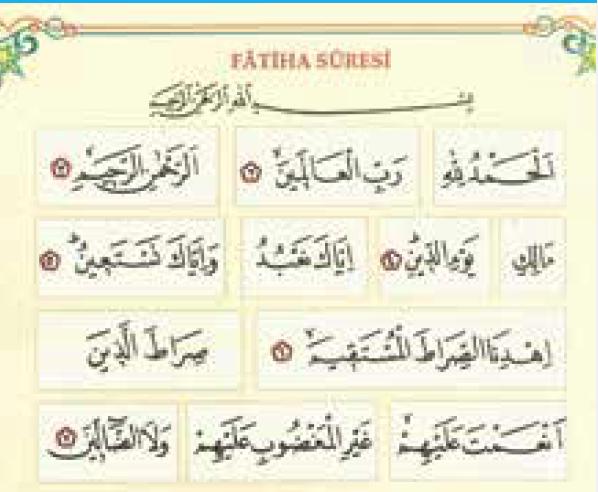 FÂTİHA SÛRESİ
بِسْمِ اللهِ الرَّحْمٰنِ الرَّحِيمِ
اَلْحَمْدُ لِلّٰهِ رَبِّ الْعَالَمِينَ ﴿٢﴾ اَلرَّحْمٰنِ الرَّحِيمِ ﴿٣﴾
مَالِكِ يَوْمِ الدِّينِ ﴿٤﴾ اِيَّاكَ نَعْبُدُ وَاِيَّاكَ نَسْتَعِينُ ﴿٥﴾
اِهْدِنَا الصِّرَاطَ الْمُسْتَقِيمَ ﴿٦﴾ صِرَاطَ الَّذِينَ
اَنْعَمْتَ عَلَيْهِمْ غَيْرِ الْمَغْضُوبِ عَلَيْهِمْ وَلَا الضَّالِّينَ ﴿٧﴾